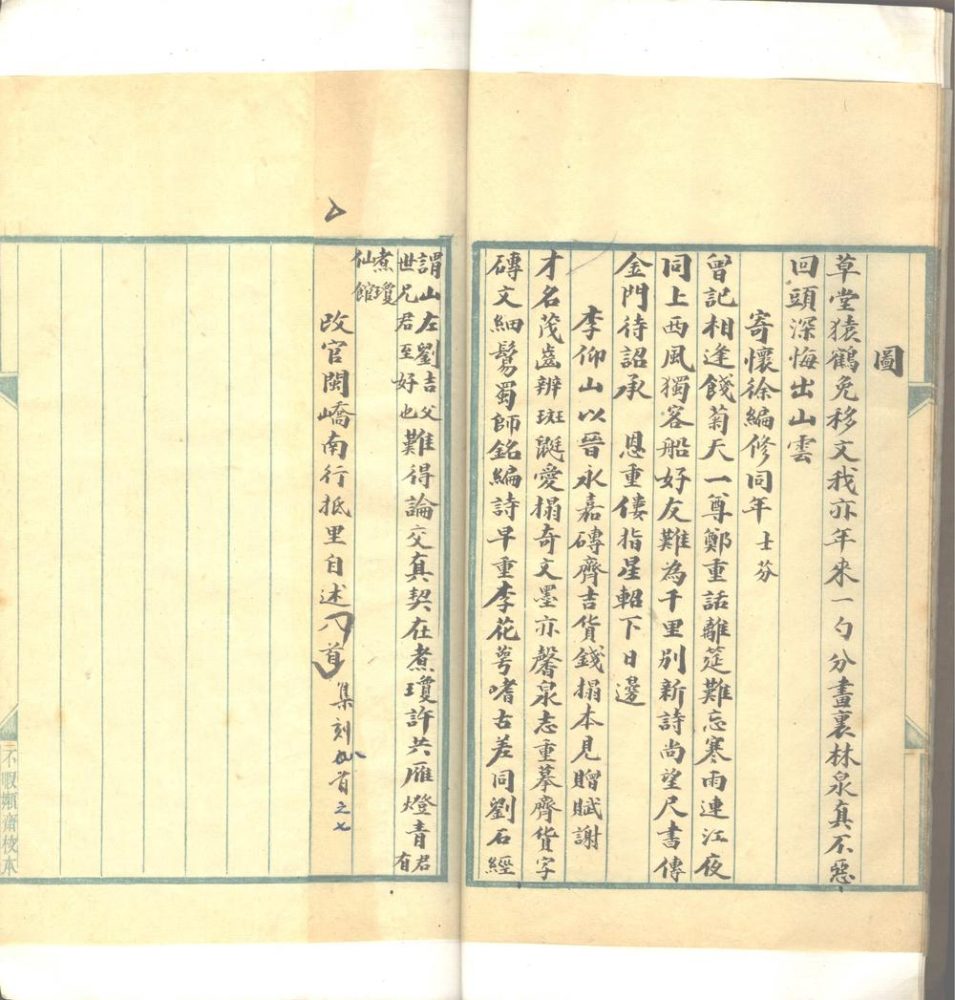 圖
草堂猿鶴免移文我亦年來一勺分畫裏林泉真不惡
回頭深悔出山雲
寄懷徐編修同年士芬
曾記相逢餞菊天一尊鄭重話離筵難忘寒雨連江夜
同上西風獨客船好友難為千里別新詩尚望尺書傳
金門待詔承 恩重僂指星軺下日邊
李仰山以晉永嘉磚齊吉貨錢搨本見贈賦謝
才名茂齒辨斑鼮愛搨奇文墨亦馨泉志重摹齊貨字
磚文細鬄蜀師銘編詩早重李花萼嗜古差同劉石經
謂山左劉吉父
世兄君至好也難得論交真契在煮瓊許共雁燈青君有
煮瓊
仙館
改官閩嶠南行抵里自述八首集刻此首之七
不暇嬾齋校本